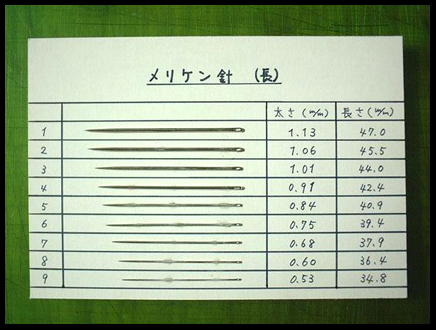 メリケン針 (長)
太さ(m/m) 長さ(m/m)
1 1.13 47.0
2 1.06 45.5
3 1.01 44.0
4 0.91 42.4
5 0.84 40.9
6 0.75 39.4
7 0.68 37.9
8 0.60 36.4
9 0.53 34.8